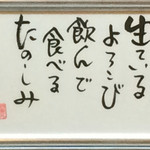 生きている
よろこび
飲んで
食べる
たのしみ